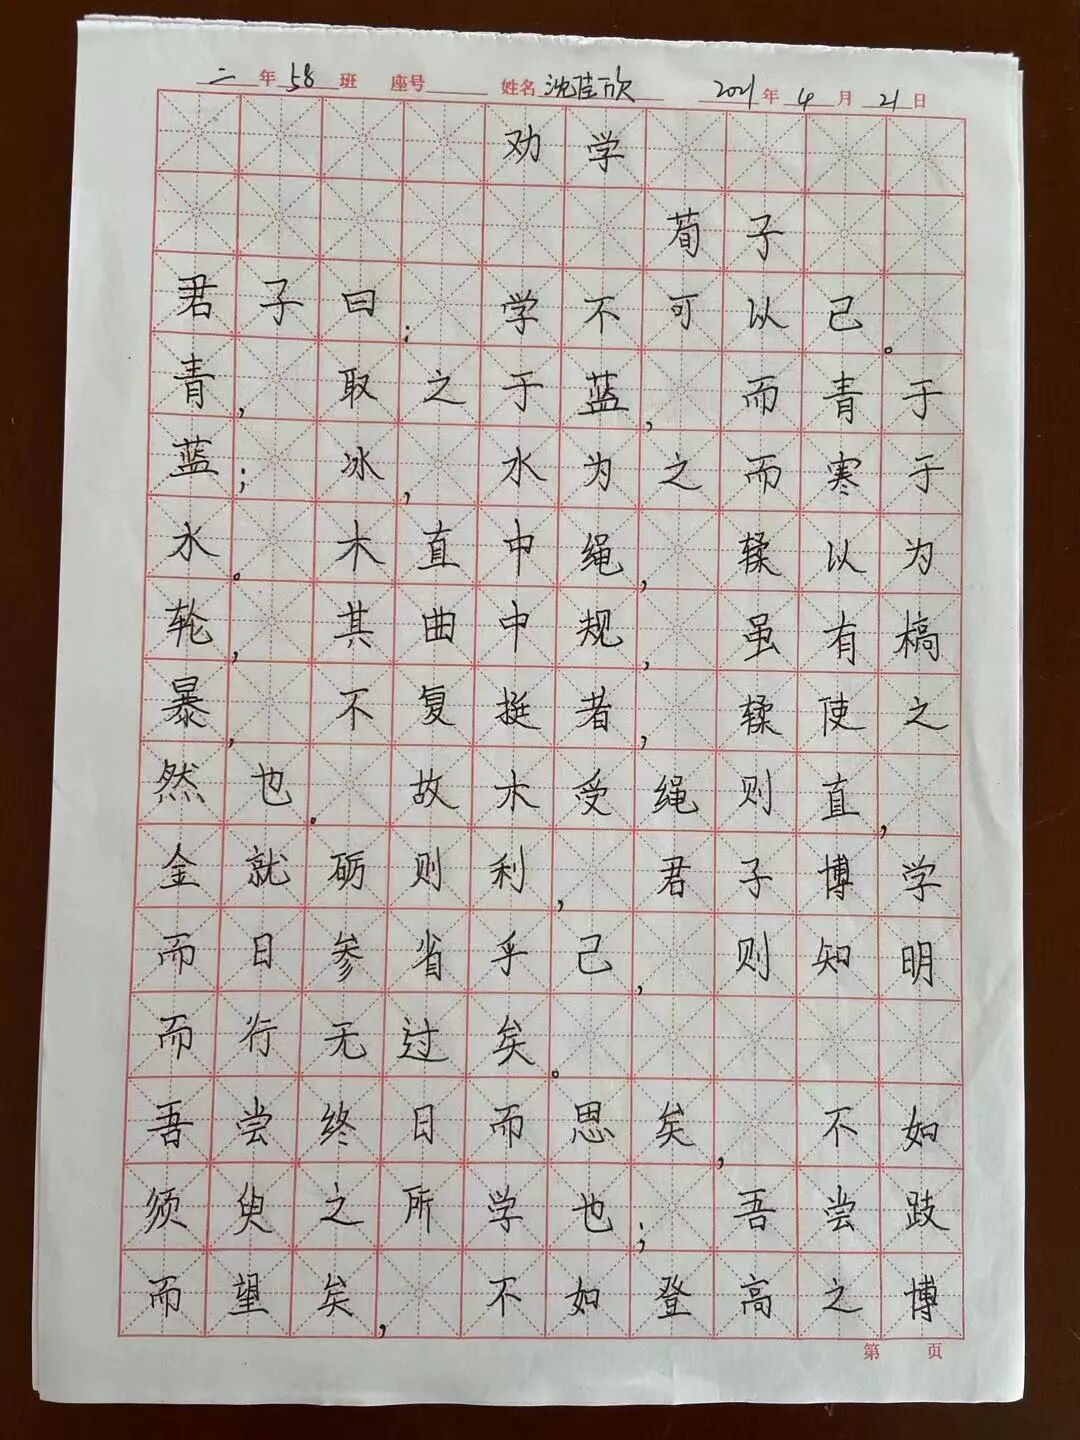 二年58班 座号 姓名沈佳欣 2021年4月21日
劝学
荀子
君子曰：学不可以已。
青，取之于蓝，而青于
蓝；冰，水为之而寒于
水。木直中绳，輮以为
轮，其曲中规，虽有槁
暴，不复挺者，輮使之
然也。故木受绳则直，
金就砺则利，君子博学
而日参省乎己，则知明
而行无过矣。
吾尝终日而思矣，不如
须臾之所学也；吾尝跂
而望矣，不如登高之博
第 页